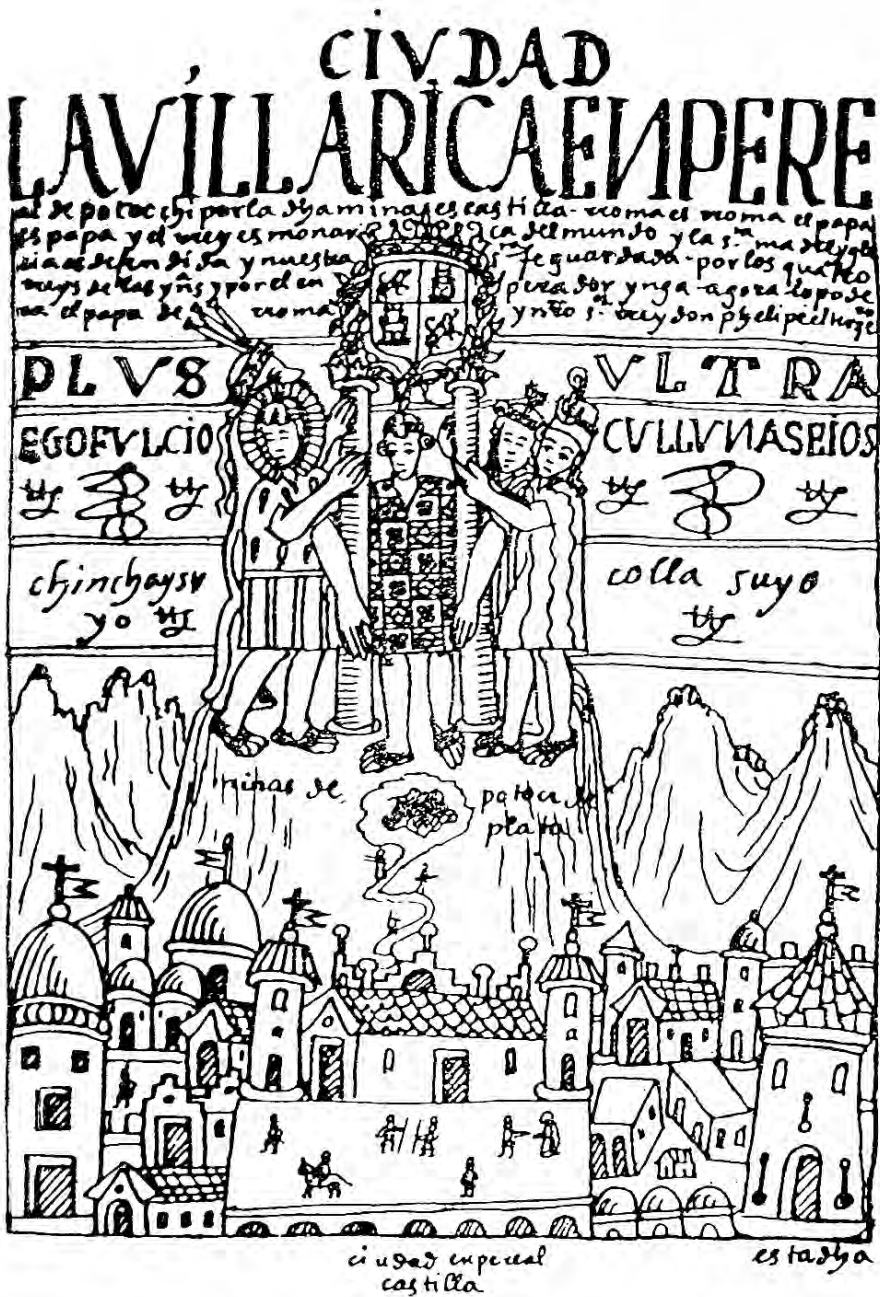 CIVDAD
LAVÍLLARÍCAENPERE
al de potocchi por la dha mina es castilla - rroma es rroma el papa
es papa y el rrey es monar ca del mundo y la s.ta madre ygle
cia es defendida y nuestra s.ta fe guardada - por los quatro
rreys de las yns y por el en perador ynga - agora lo pode
ra el papa de rroma y nro s.or rrey don phelipe el terze
PLVS VLTRA
EGOFVLCIO CVLLVNASEIOS
chinchaysu colla suyo
yo
minas de potoci de
plata
ciudad enpereal esta dha
castilla